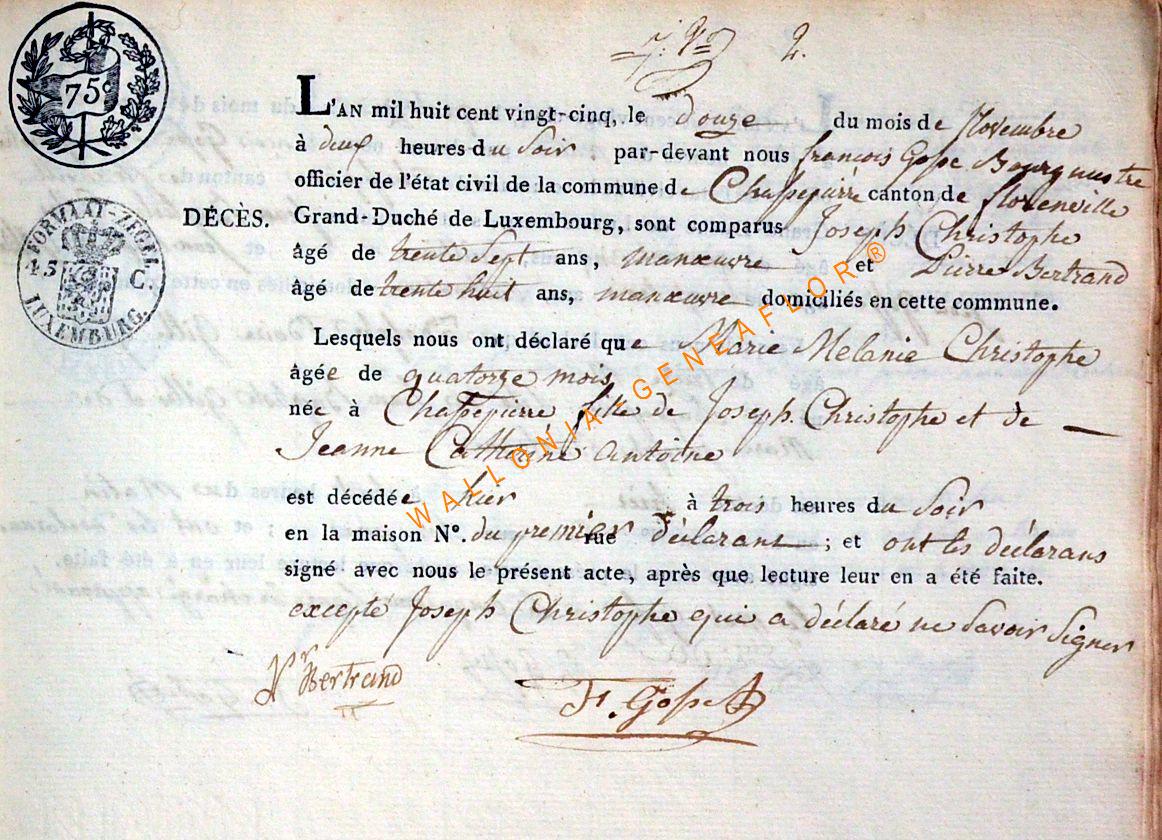 75c
2.
L'AN mil huit cent vingt-cinq, le douze du mois de Novembre
à deux heures du Soir par-devant nous françois Gosse Bourguestre
officier de l'état civil de la commune de Chassepierre canton de florenville
DÉCÈS. Grand-Duché de Luxembourg, sont comparus Joseph Christophe
FORMAAT-ZEGEL.
45 C.
LUXEMBURG.
âgé de trente Sept ans, manœuvre et Pierre Bertrand
âgé de trente huit ans, manœuvre domiciliés en cette commune.
Lesquels nous ont déclaré que Marie Melanie Christophe
âgée de quatorze mois
née à Chassepierre fille de Joseph Christophe et de
Jeanne Catherine antoine
est décédée hier à trois heures du Soir
en la maison N°. du premier rue déclarans ; et ont les déclarans
signé avec nous le présent acte, après que lecture leur en a été faite.
excepté Joseph Christophe qui a déclaré ne Savoir Signer
Bertrand
F. Gosse
WALLONIA - GENEAFLOR ®